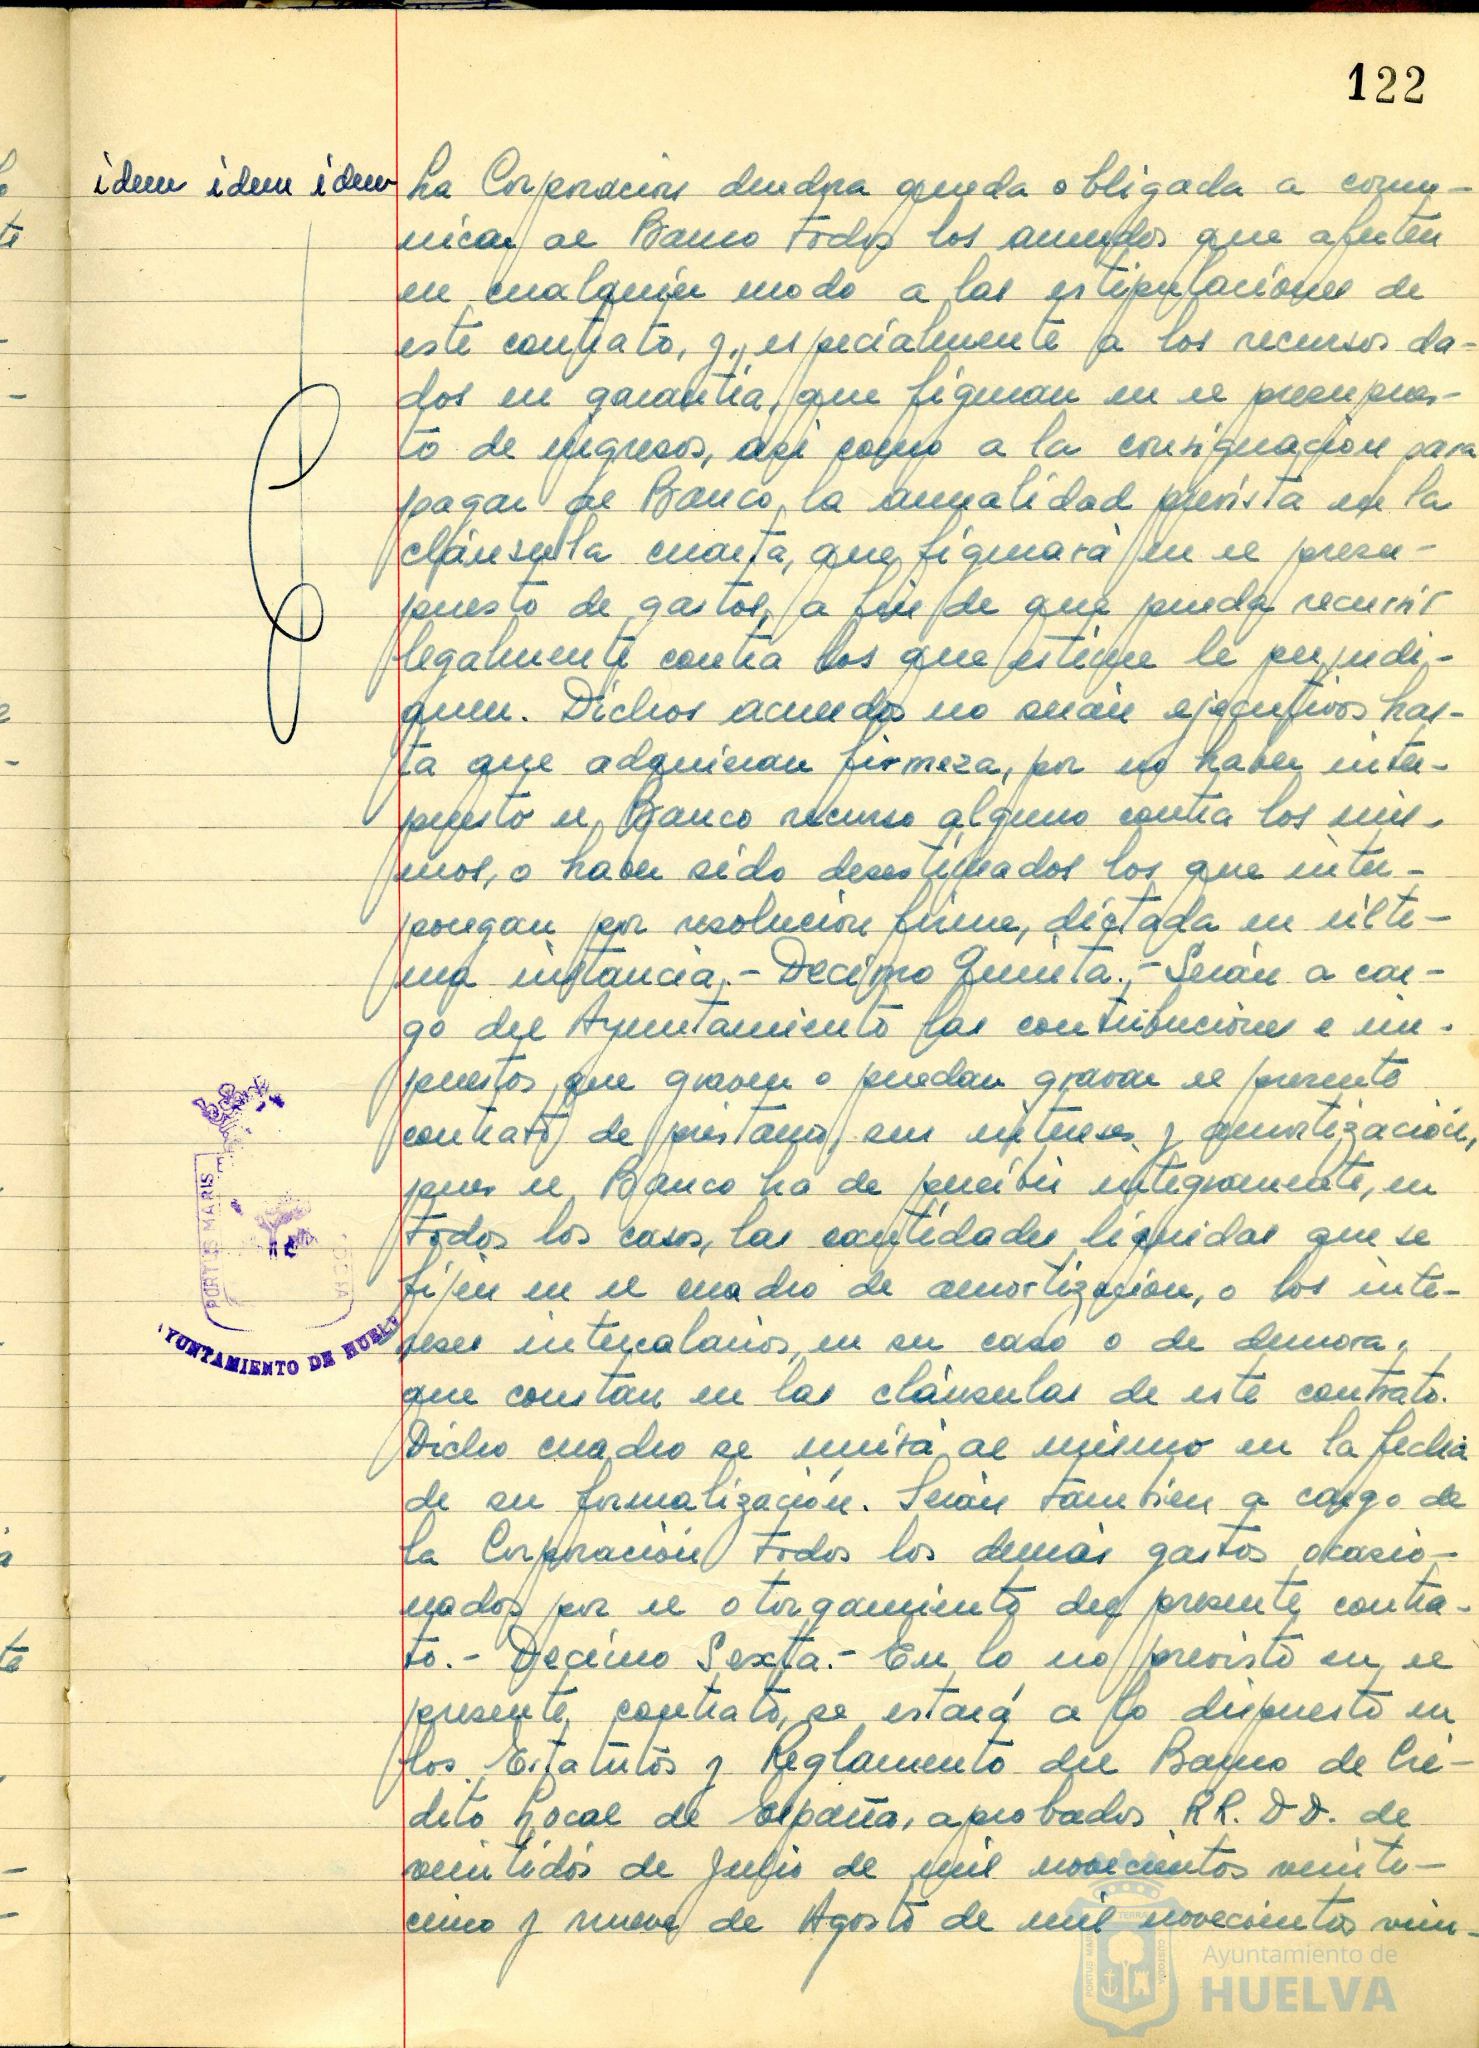 122
idem idem idem
La Corporación deudora queda obligada a comu-
nicar al Banco todos los acuerdos que afecten
en cualquier modo a las estipulaciones de
este contrato, y, especialmente a los recursos da-
dos en garantía, que figuran en el presupues-
to de ingresos, asi como a la consignación para
pagar al Banco, la anualidad prevista en la
cláusula cuarta, que figurará en el presu-
puesto de gastos, a fin de que pueda recurrir
legalmente contra los que estime le perjudi-
quen. Dichos acuerdos no serán ejecutivos has-
ta que adquieran firmeza, por no haber inter-
puesto el Banco recurso alguno contra los mis-
mos, o haber sido desestimados los que inter-
pongan por resolución firme, dictada en últi-
ma instancia.- Decimo Quinta.- Serán a car-
go del Ayuntamiento las contribuciones e im-
puestos que graven o puedan gravar el presente
contrato de préstamo, sus intereses y amortización,
pues el Banco ha de percibir integramente, en
todos los casos, las cantidades líquidas que se
fijen en el cuadro de amortización, o los inte-
reses intercalarios, en su caso o de demora,
que constan en las cláusulas de este contrato.
Dicho cuadro se unirá al mismo en la fecha
de su formalización. Serán tambien a cargo de
la Corporación todos los demás gastos ocasio-
nados por el otorgamiento del presente contra-
to.- Decimo Sexta.- En lo no previsto en el
presente contrato, se estará a lo dispuesto en
los Estatutos y Reglamento del Banco de Cré-
dito Local de España, aprobados RR. DD. de
veintidós de Julio de mil novecientos veinti-
cinco y nueve de Agosto de mil novecientos vein-
PORTUS MARIS
AYUNTAMIENTO DE HUELV
Ayuntamiento de
HUELVA